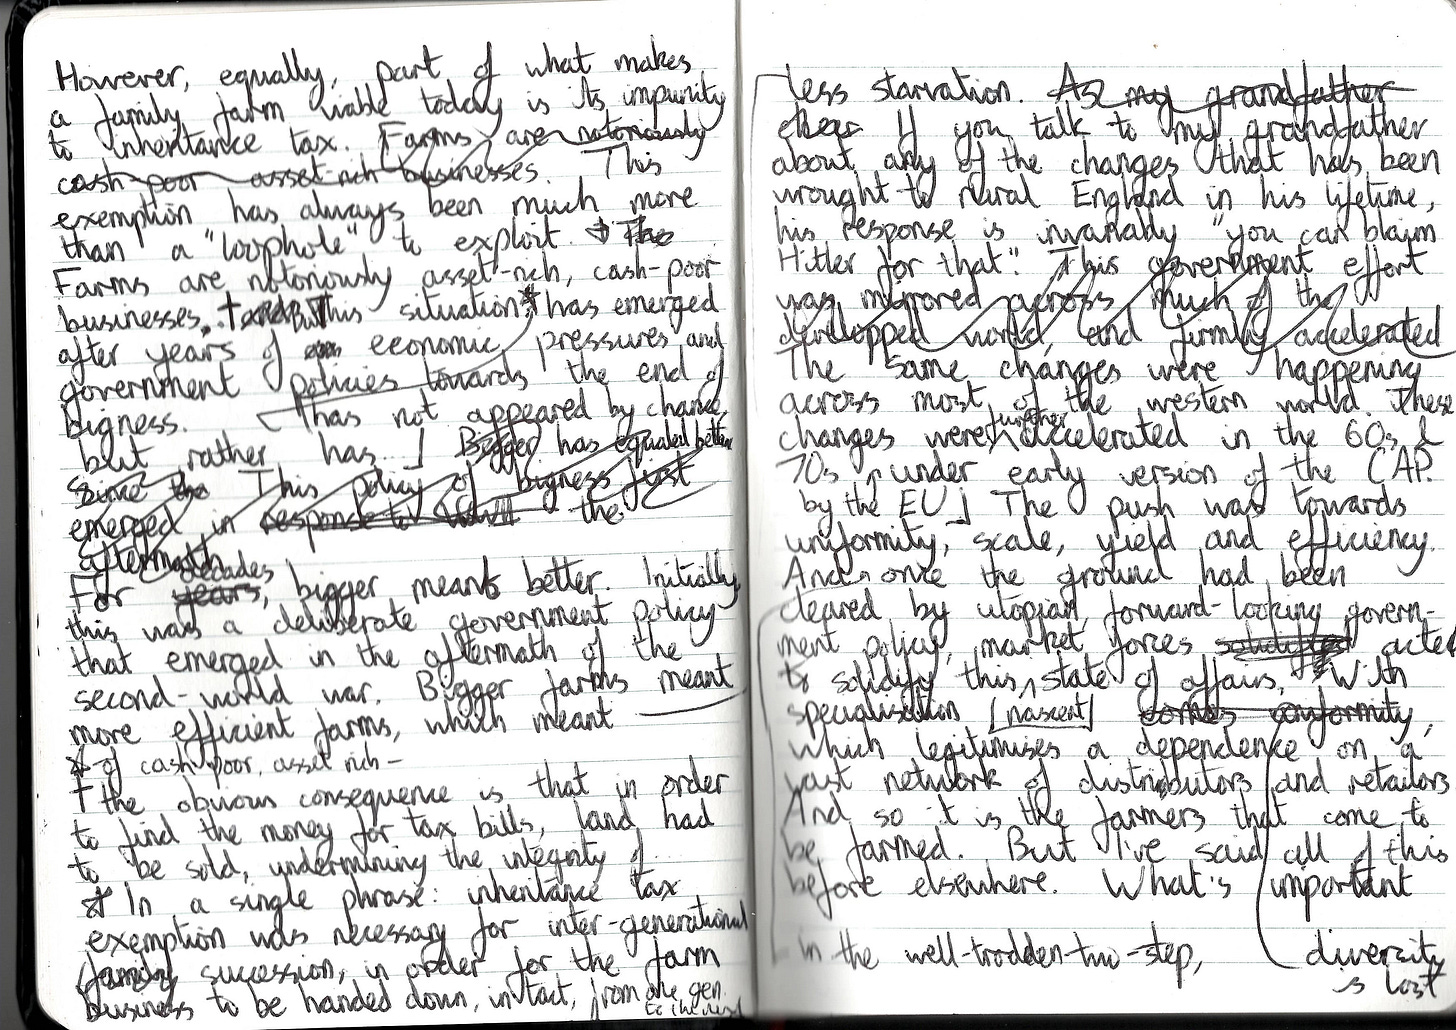 However, equally, part of what makes
a family farm viable today is its impunity
to inheritance tax. Farms are notoriously
cash-poor asset-rich businesses. This
exemption has always been much more
than a "loophole" to exploit. The
Farms are notoriously asset-rich, cash-poor
businesses. But This situation has emerged
after years of economic pressures and
government policies towards the end of
bigness. [has not appeared by chance,
but rather has..] Bigger has equaled better
since This policy of bigness first
emerged in response to the
aftermath
decades
For years, bigger meant better. Initially,
this was a deliberate government policy
that emerged in the aftermath of the
second-world war. Bigger farms meant
more efficient farms, which meant
* of cash poor, asset rich -
† the obvious consequence is that in order
to find the money for tax bills, land had
to be sold, undermining the integrity of
* In a single phrase: inheritance tax
exemption was necessary for inter-generational
family succession, in order for the farm
business to be handed down, intact, from one gen.
to the next
less starvation. As my grandfather
If you talk to my grandfather
about any of the changes that has been
wrought to rural England in his lifetime,
his response is invariably "you can blaim
Hitler for that". This government effort
was mirrored across much of the
developped world, and firmly accelerated
The same changes were happening
across most of the western world. These
further
changes were accelerated in the 60s &
70s under early version of the CAP.
by the EU] The push was towards
uniformity, scale, yield and efficiency.
And once the ground had been
cleared by utopian, forward-looking govern-
ment policy, market forces solidified acted
to solidify this state of affairs. With
specialisation [nascent] comes conformity,
which legitimises a dependence on a
vast network of distributors and retailors
And so it is the farmers that come to
be farmed. But I've said all of this
before elsewhere. What's important
in the well-trodden-two-step, diversity
is lost